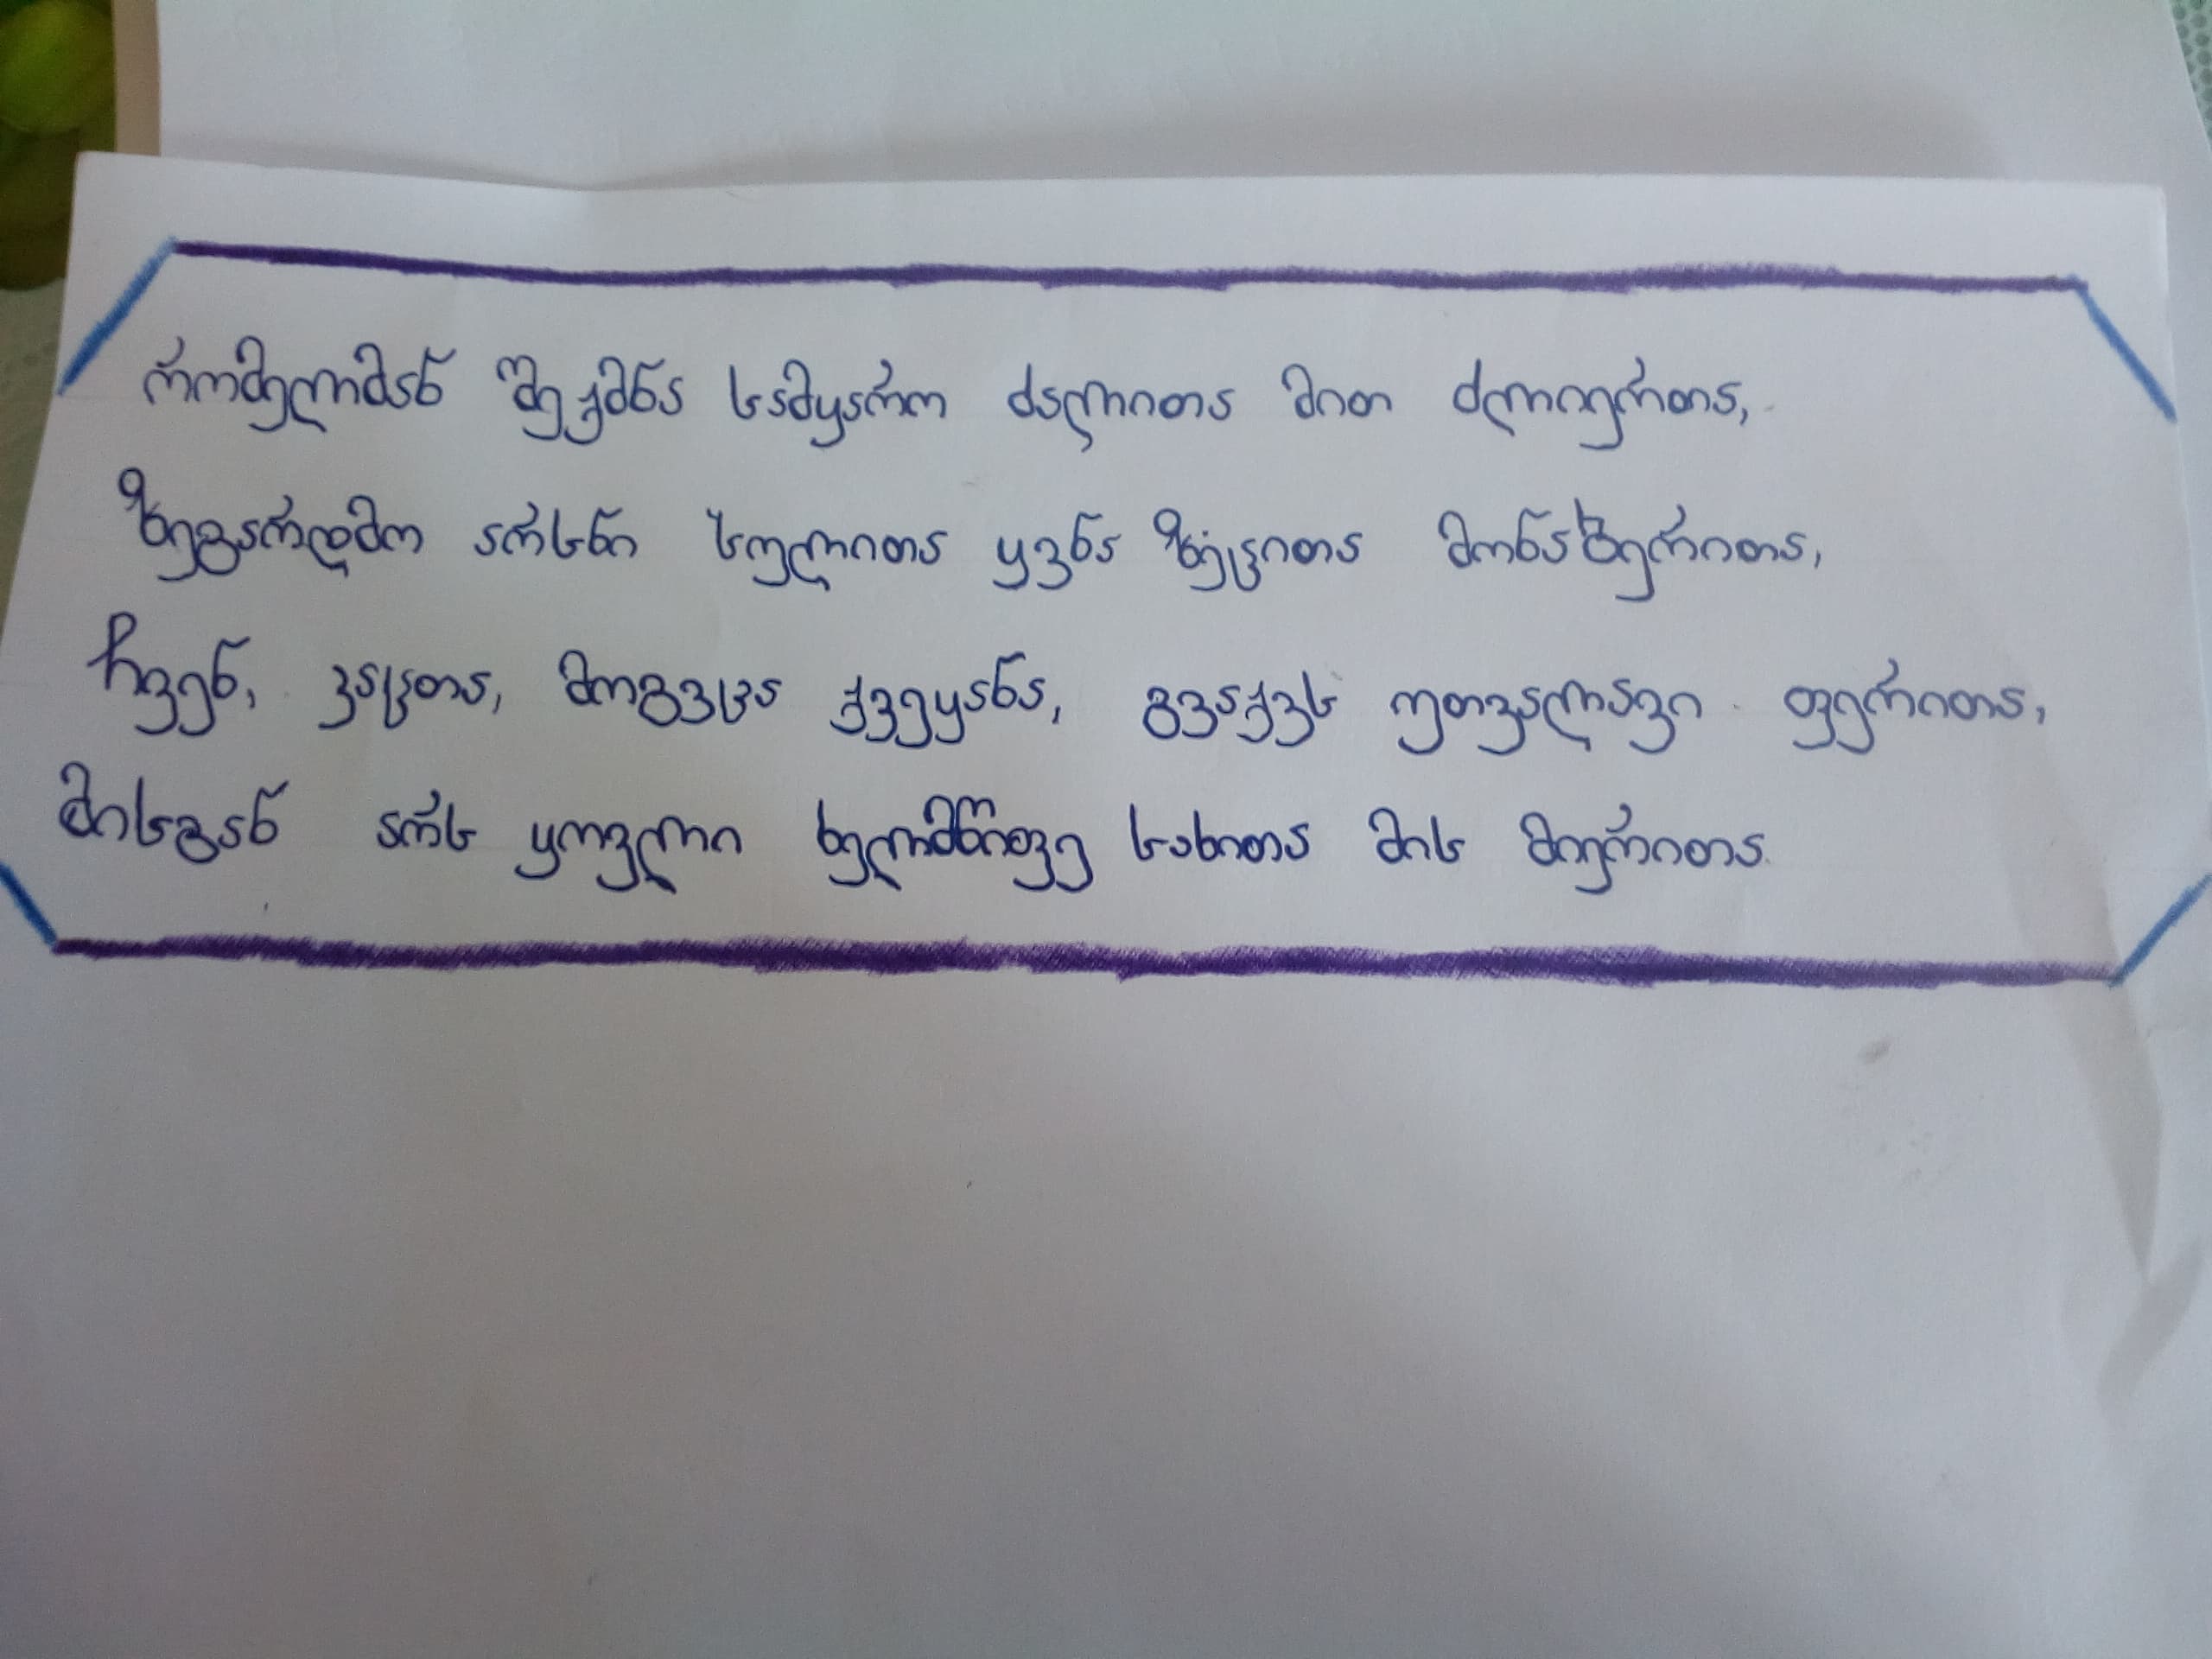 რომელმან შექმნა სამყარო ძალითა მით ძლიერითა,
ზეგარდმო არსნი სულითა ყვნა ზეცით მონაბერითა,
ჩვენ, კაცთა, მოგვცა ქვეყანა, გვაქვს უთვალავი ფერითა,
მისგან არს ყოვლი ხელმწიფე სახითა მის მიერითა.